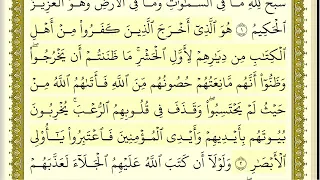 سَبَّحَ لِلَّهِ مَا فِي السَّمَٰوَٰتِ وَمَا فِي الْأَرْضِ وَهُوَ الْعَزِيزُ
الْحَكِيمُ ١ هُوَ الَّذِي أَخْرَجَ الَّذِينَ كَفَرُوا مِنْ أَهْلِ
الْكِتَٰبِ مِن دِيَٰرِهِمْ لِأَوَّلِ الْحَشْرِ مَا ظَنَنتُمْ أَن يَخْرُجُوا
وَظَنُّوا أَنَّهُم مَّانِعَتُهُمْ حُصُونُهُم مِّنَ اللَّهِ فَأَتَىٰهُمُ اللَّهُ مِنْ
حَيْثُ لَمْ يَحْتَسِبُوا وَقَذَفَ فِي قُلُوبِهِمُ الرُّعْبَ يُخْرِبُونَ
بُيُوتَهُم بِأَيْدِيهِمْ وَأَيْدِي الْمُؤْمِنِينَ فَاعْتَبِرُوا يَٰأُولِي
الْأَبْصَٰرِ ٢ وَلَوْلَا أَن كَتَبَ اللَّهُ عَلَيْهِمُ الْجَلَاءَ لَعَذَّبَهُمْ